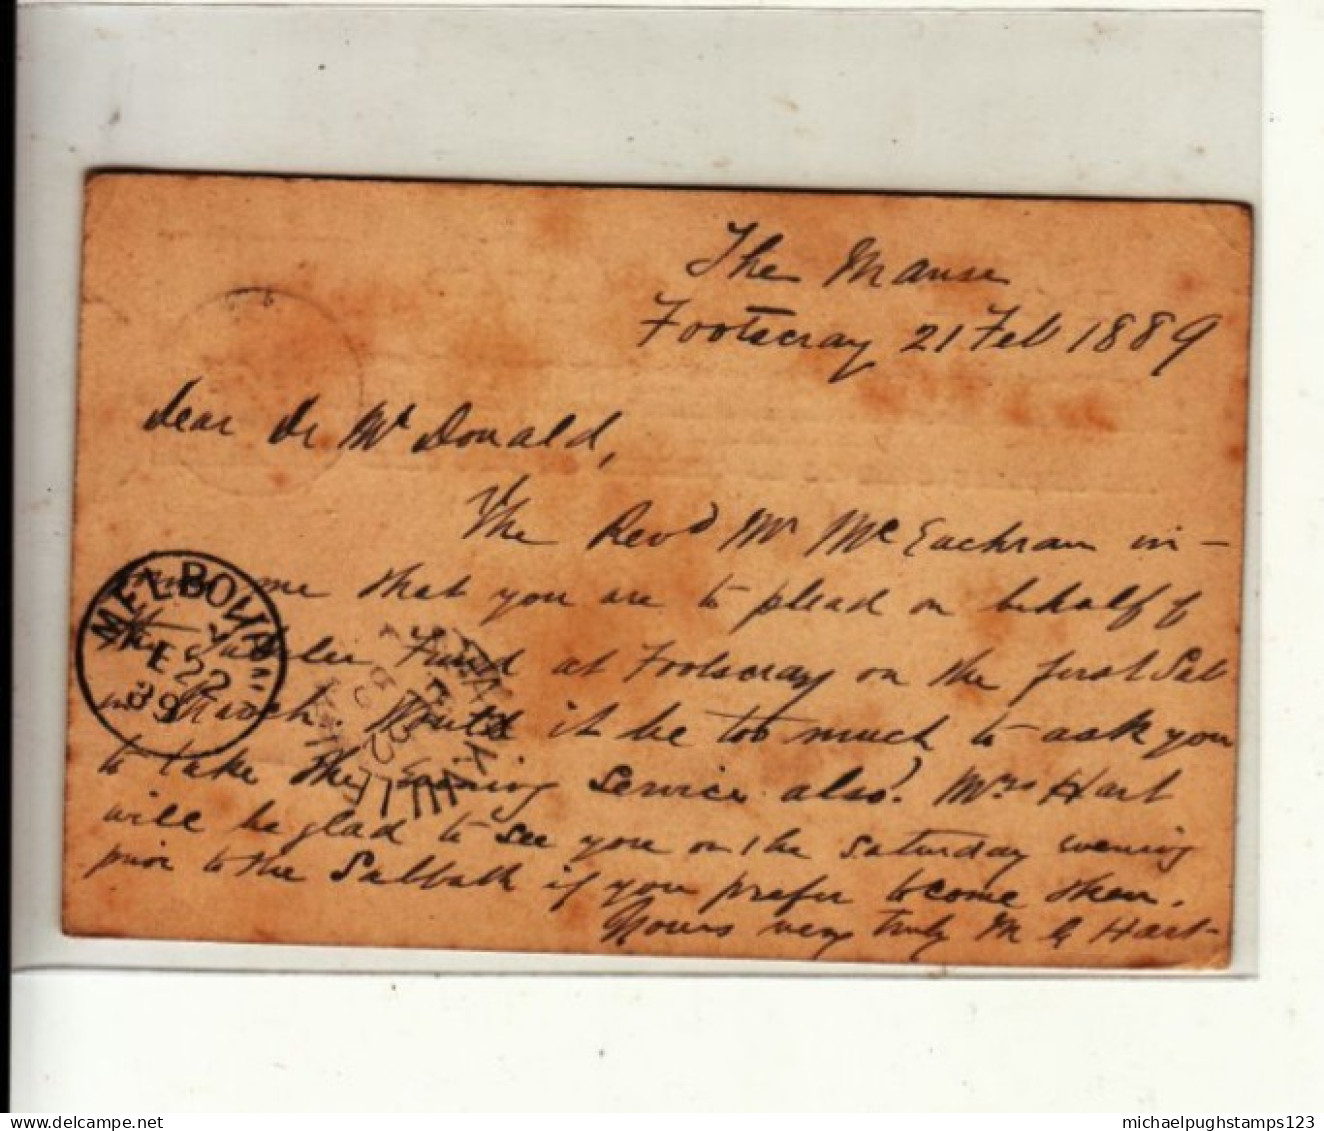 The Manse
Footscray 21 Feb 1889
Dear Dr Mc Donald,
The Revd Mr McEachran in-
me that you are to plead on behalf of
the Jubilee Fund at Footscray on the first Sab
in March. Would it be too much to ask you
to take the Evening Service also? Mrs Hart
will be glad to see you on the Saturday evening
prior to the Sabbath if you prefer to come then.
Yours very truly M G Hart
MELBOURNE
FE 22
89
michaelpughstamps123